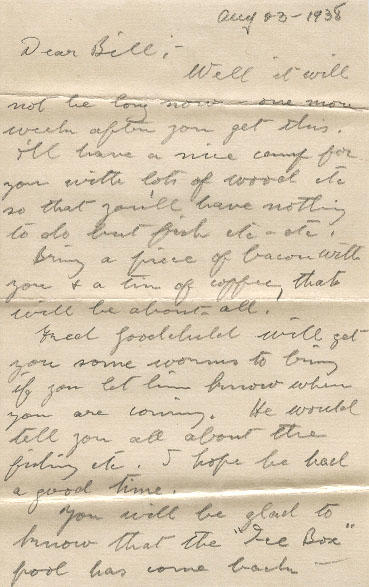 Aug 23 - 1938
Dear Bill; -
Well it will
not be long now - one more
week after you get this.
I'll have a nice camp for
you with lots of wood etc
so that you'll have nothing
to do but fish etc - etc.
Bring a piece of bacon with
you & a tin of coffee, that
will be about all.
Fred Goodchild will get
you some worms to bring
if you let him know when
you are coming. He would
tell you all about the
fishing etc. I hope he had
a good time.
You will be glad to
know that the "Ice Box"
pool has come back -